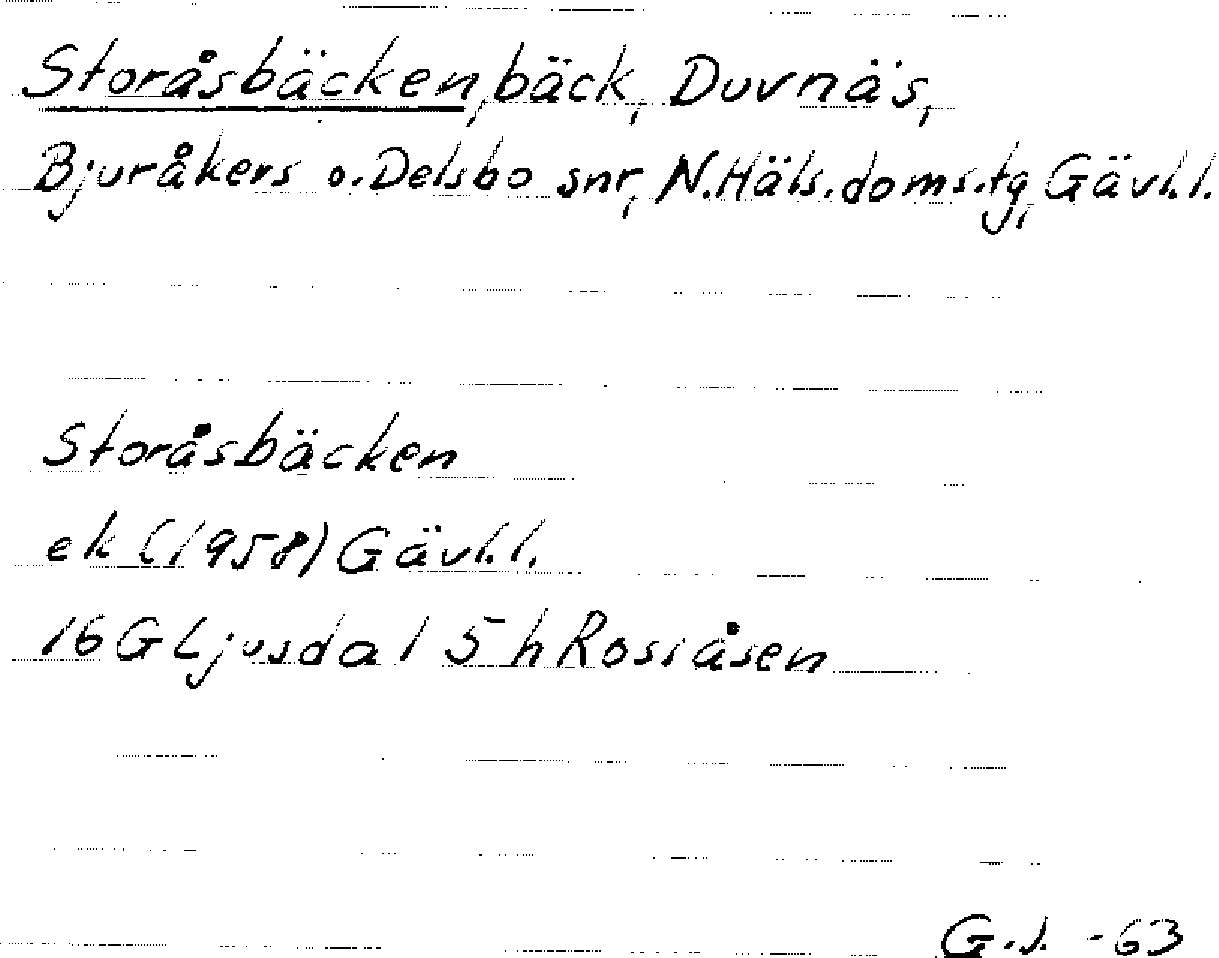 Storåsbäcken, bäck, Duvnäs,
Bjuråkers o. Delsbo snr, N. Häls. doms.tg, Gävl.l.
Storåsbäcken
ek (1958) Gävl.l.
16 G Ljusdal 5 h Rosiåsen
G.J. -63